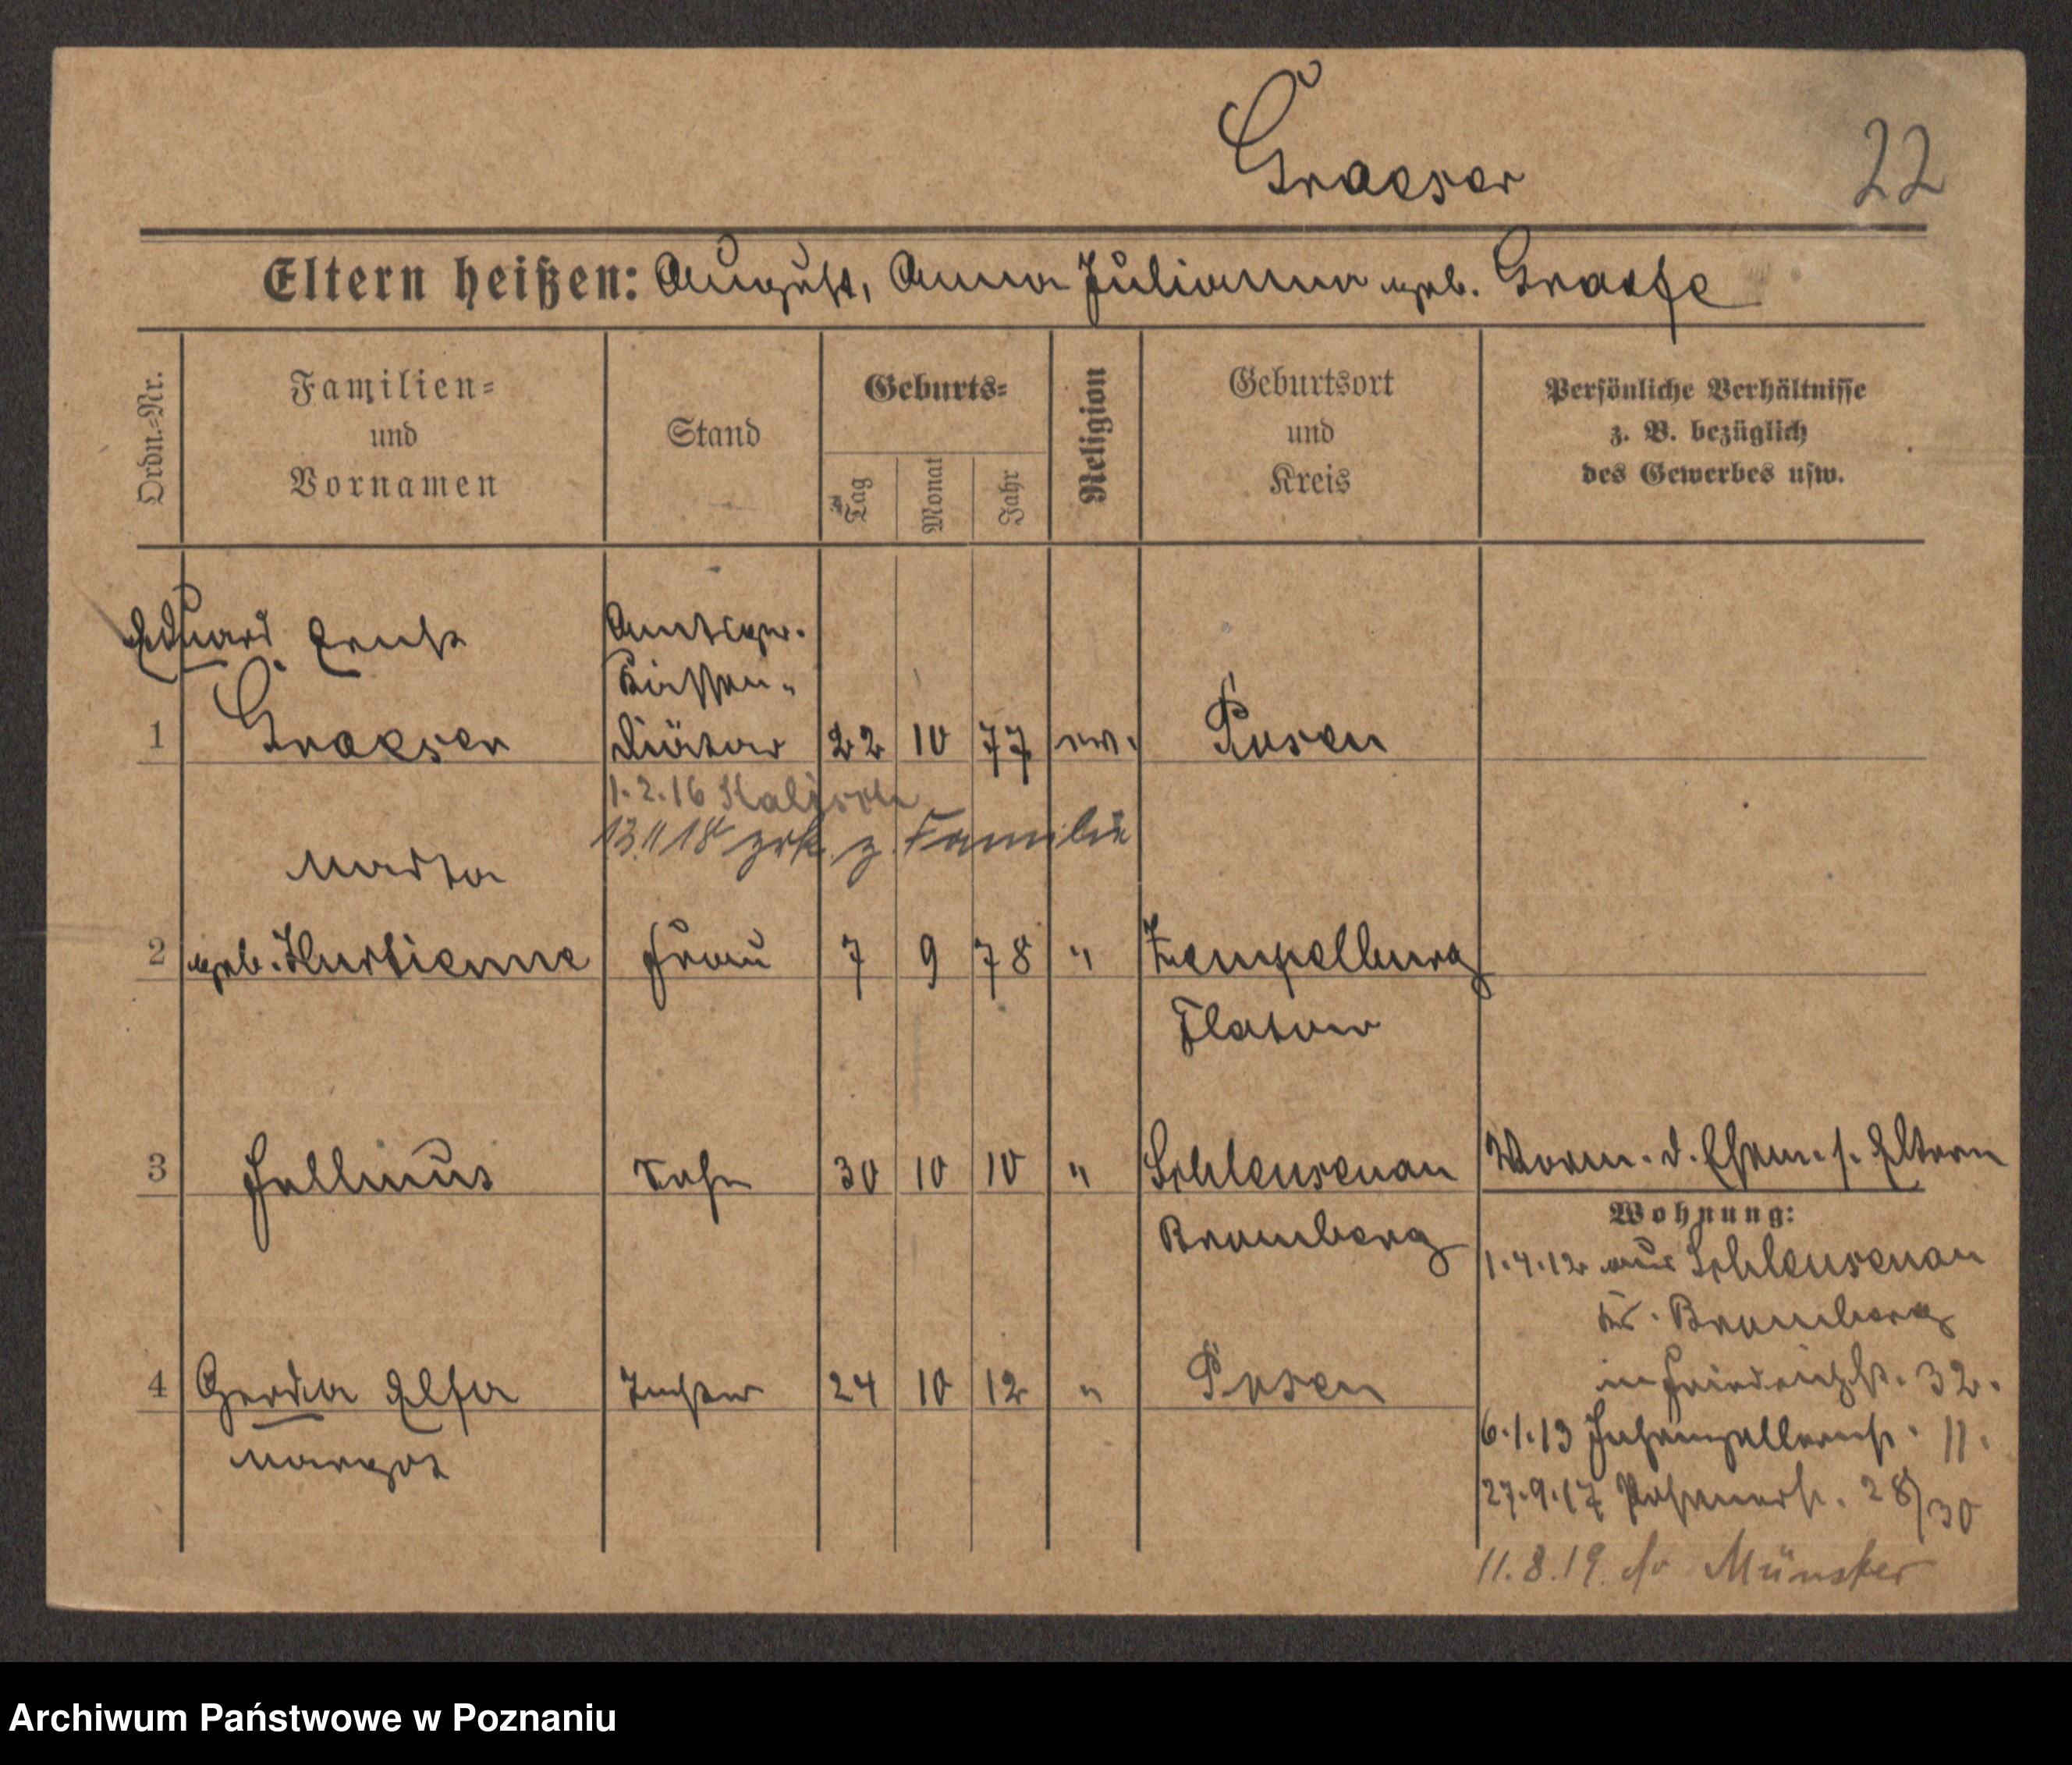 Graeser
22
Eltern heißen: August, Anna Julianna geb. Graefe
Ordn.=Nr.
Familien=
und
Vornamen
Stand
Geburts=
Tag
Monat
Jahr
Religion
Geburtsort
und
Kreis
Persönliche Verhältnisse
z. B. bezüglich
des Gewerbes usw.
Eduard Ernst
Amtsger.
Kassen-
1 Graeser Diätar 22 10 77 ev. Posen
1.2.16 Kalisch
13.11 18 zrk. z. Familie
Martha
2 geb. Hurtienne Frau 7 9 78 " Zempelburg
Flatow
3 Hellmut Sohn 30 10 10 " Schleusenau
Bromberg
Verm. d. Ehem. s. Eltern
Wohnung:
1.4.12 aus Schleusenau
Kr. Bromberg
in Friedrichstr. 32.
4 Gerda Elsa Tochter 24 10 12 " Posen
Margot
6.1.13 Hohenzollernstr. 11.
27.9.17 28/30
11.8.19. Münster
Archiwum Państwowe w Poznaniu